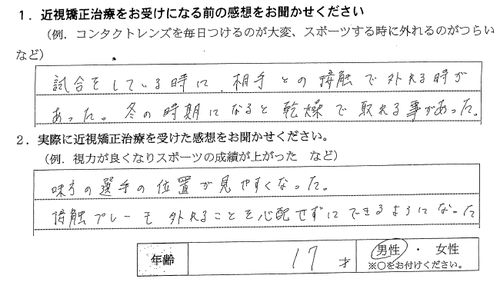 １．近視矯正治療をお受けになる前の感想をお聞かせください
（例．コンタクトレンズを毎日つけるのが大変、スポーツする時に外れるのがつらい
など）
試合をしている時に、相手との接触で外れる時が
あった。冬の時期になると乾燥で取れる事があった。
２．実際に近視矯正治療を受けた感想をお聞かせください。
（例．視力が良くなりスポーツの成績が上がった　など）
味方の選手の位置が見やすくなった。
接触プレーも外れることを心配せずにできるようになった
年齢　17才　男性　・　女性
※○をお付けください。